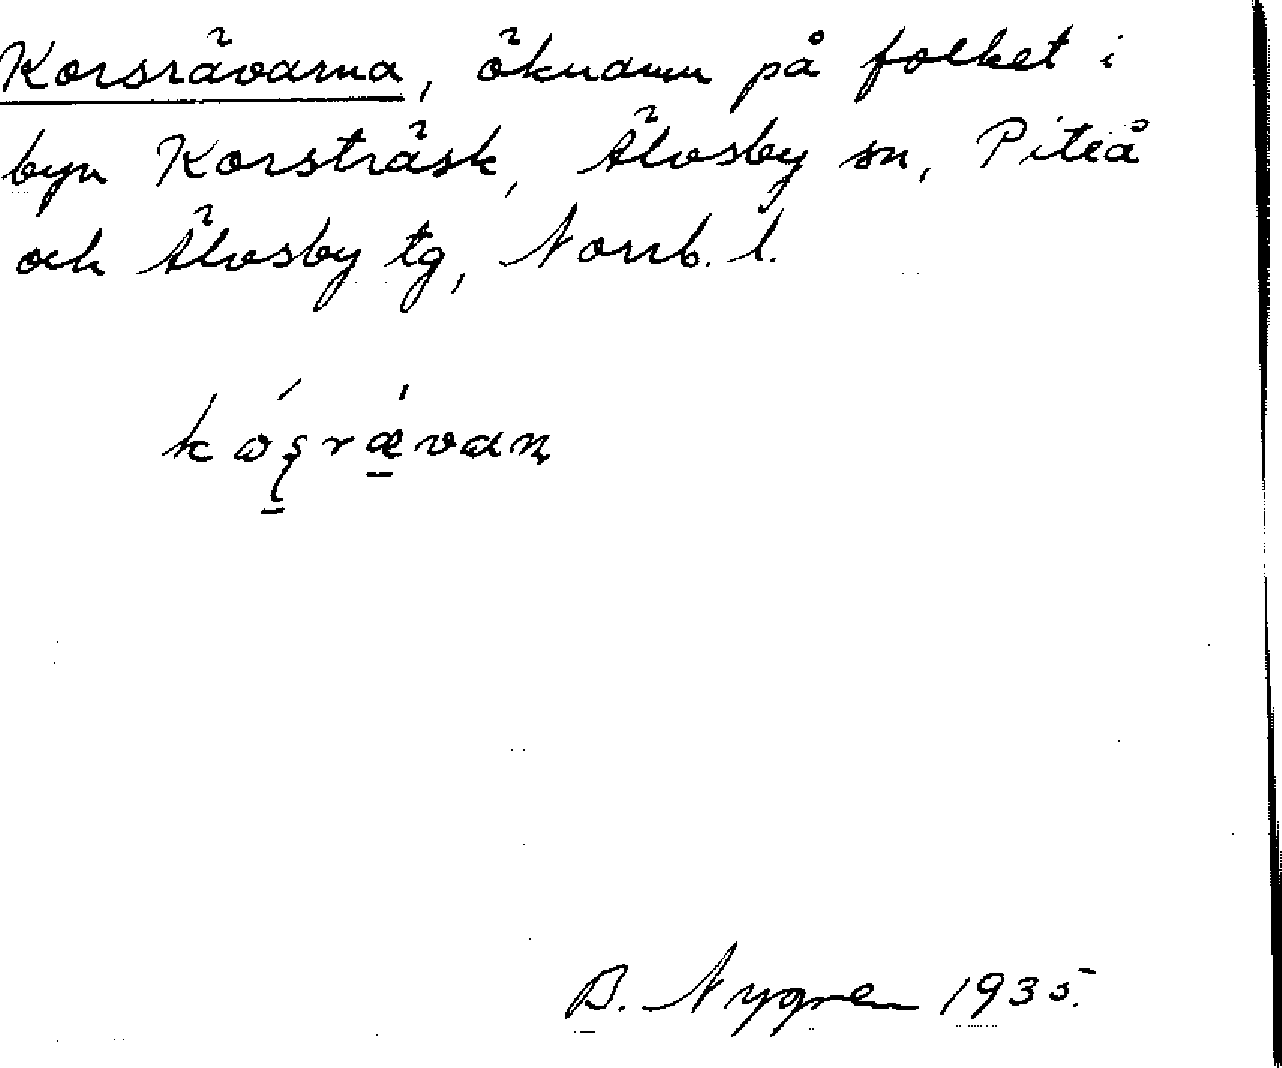 Korsrävarna, öknamn på folket i
byn Korsträsk, Älvsby sn, Piteå
och Älvsby tg, Norrb. l.
B. Nygren 1935.